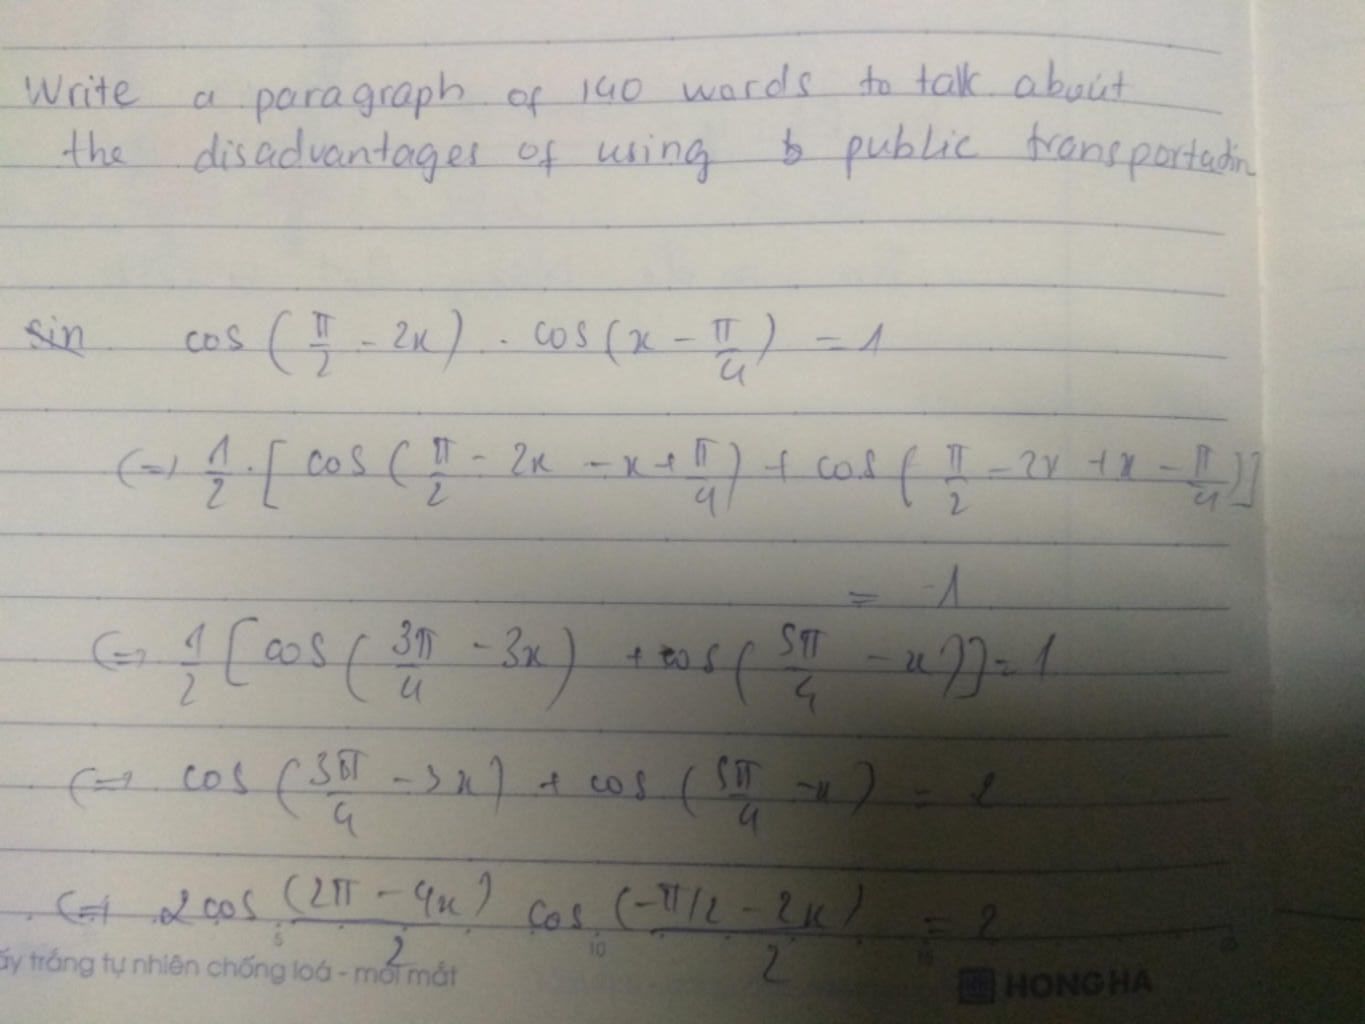 Write a paragraph of 140 words to talk about
the disadvantages of using public transportation
sin cos (π/2 - 2x) . cos (x - π/4) = 1
(=) 1/2 . [ cos ( π/2 - 2x - x + π/4 ) + cos ( π/2 - 2x + x - π/4 ) ]
= 1
(=) 1/2 [ cos ( 3π/4 - 3x ) + cos ( 5π/4 - x ) ] = 1
(=) cos ( 3π/4 - 3x ) + cos ( 5π/4 - x ) = 2
(=) 2 cos (2π - 4x)/2 cos (-π/2 - 2x)/2 = 2
5 10 15
ấy trắng tự nhiên chống loá - mỏi mắt HONG HA